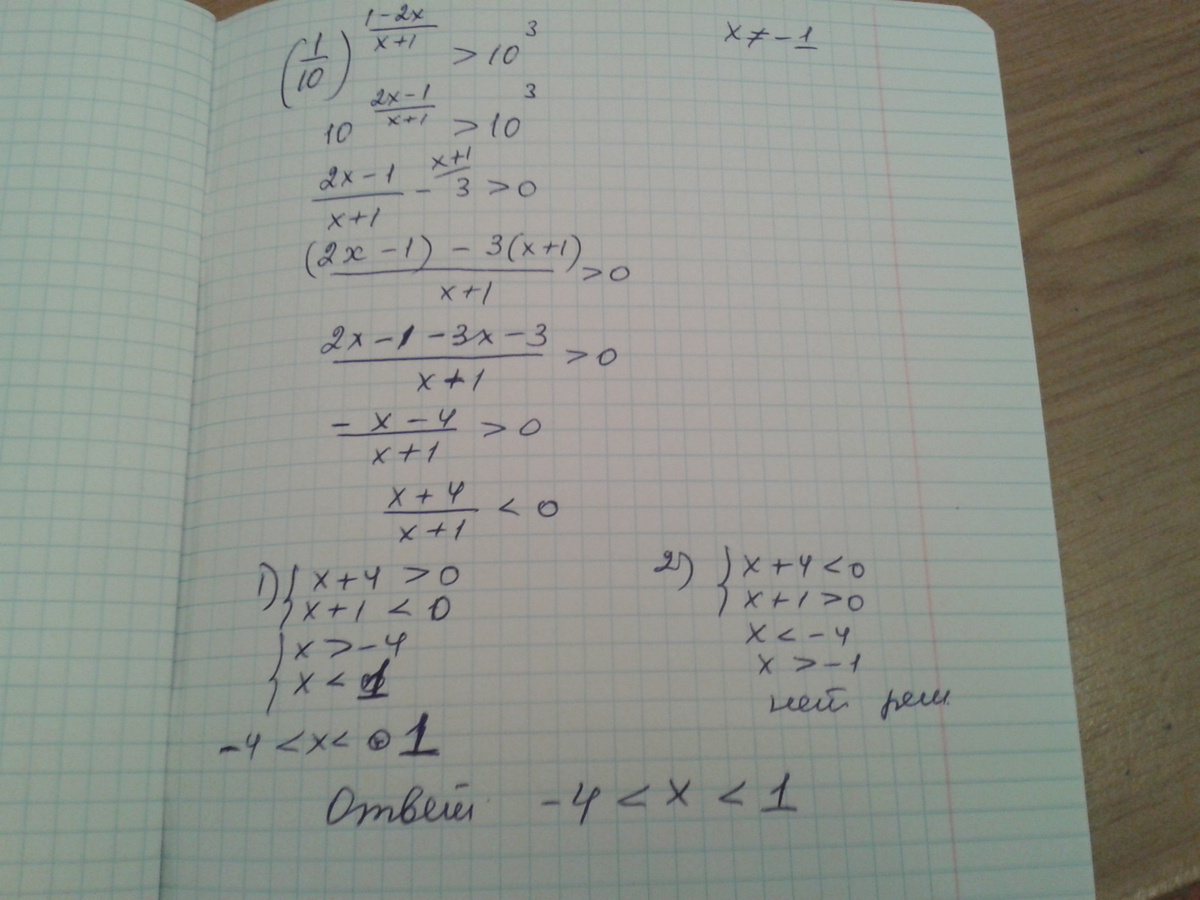 (1/10)^((1-2x)/(x+1)) > 10^3 x ≠ -1
10^((2x-1)/(x+1)) > 10^3
(2x-1)/(x+1) - 3^(x+1) > 0
((2x-1) - 3(x+1))/(x+1) > 0
(2x-1-3x-3)/(x+1) > 0
(-x-4)/(x+1) > 0
(x+4)/(x+1) < 0
1) { x+4 > 0
x+1 < 0
{ x > -4
x < 1
-4 < x < 1
2) } x+4 < 0
x+1 > 0
x < -4
x > -1
нет реш.
Ответ -4 < x < 1